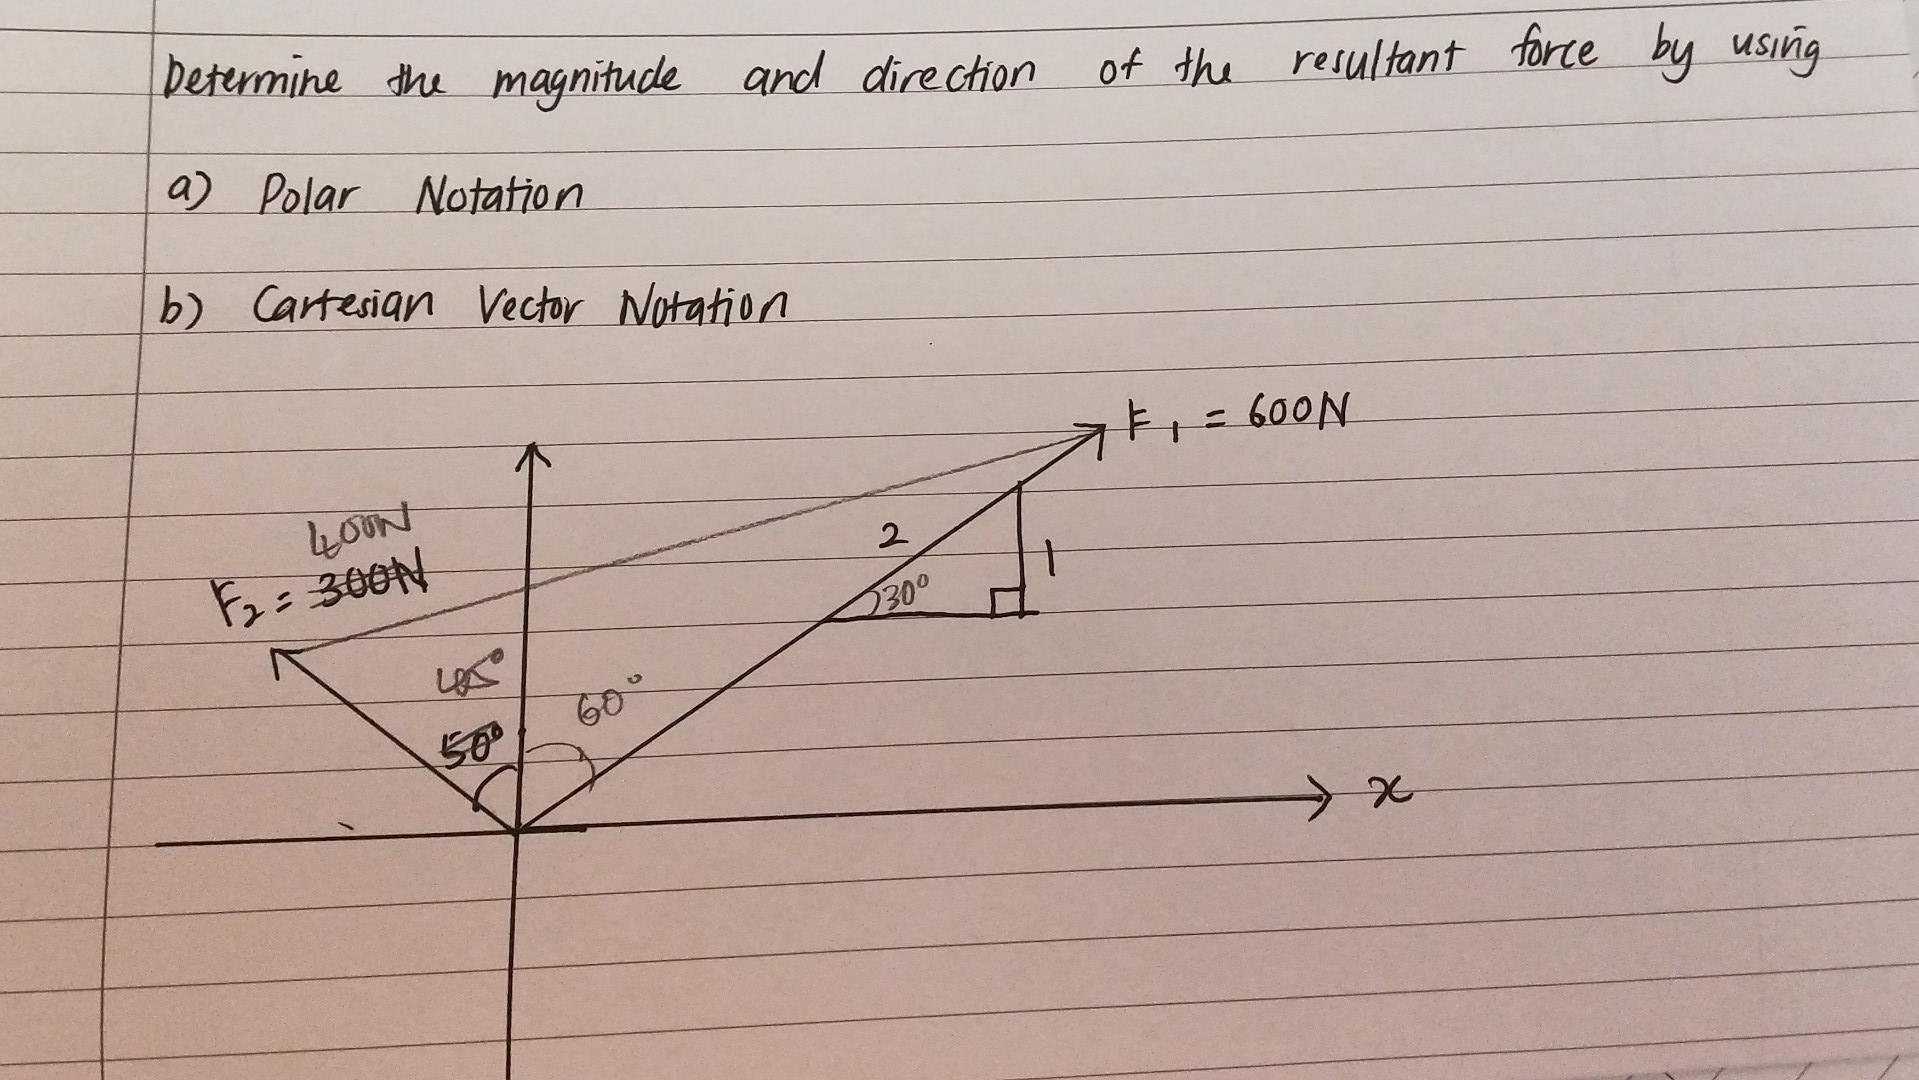 Determine the magnitude and direction of the resultant force by using
a) Polar Notation
b) Cartesian Vector Notation
F1 = 600N
400N
F2 = 300N
2
1
30°
45°
60°
50°
x